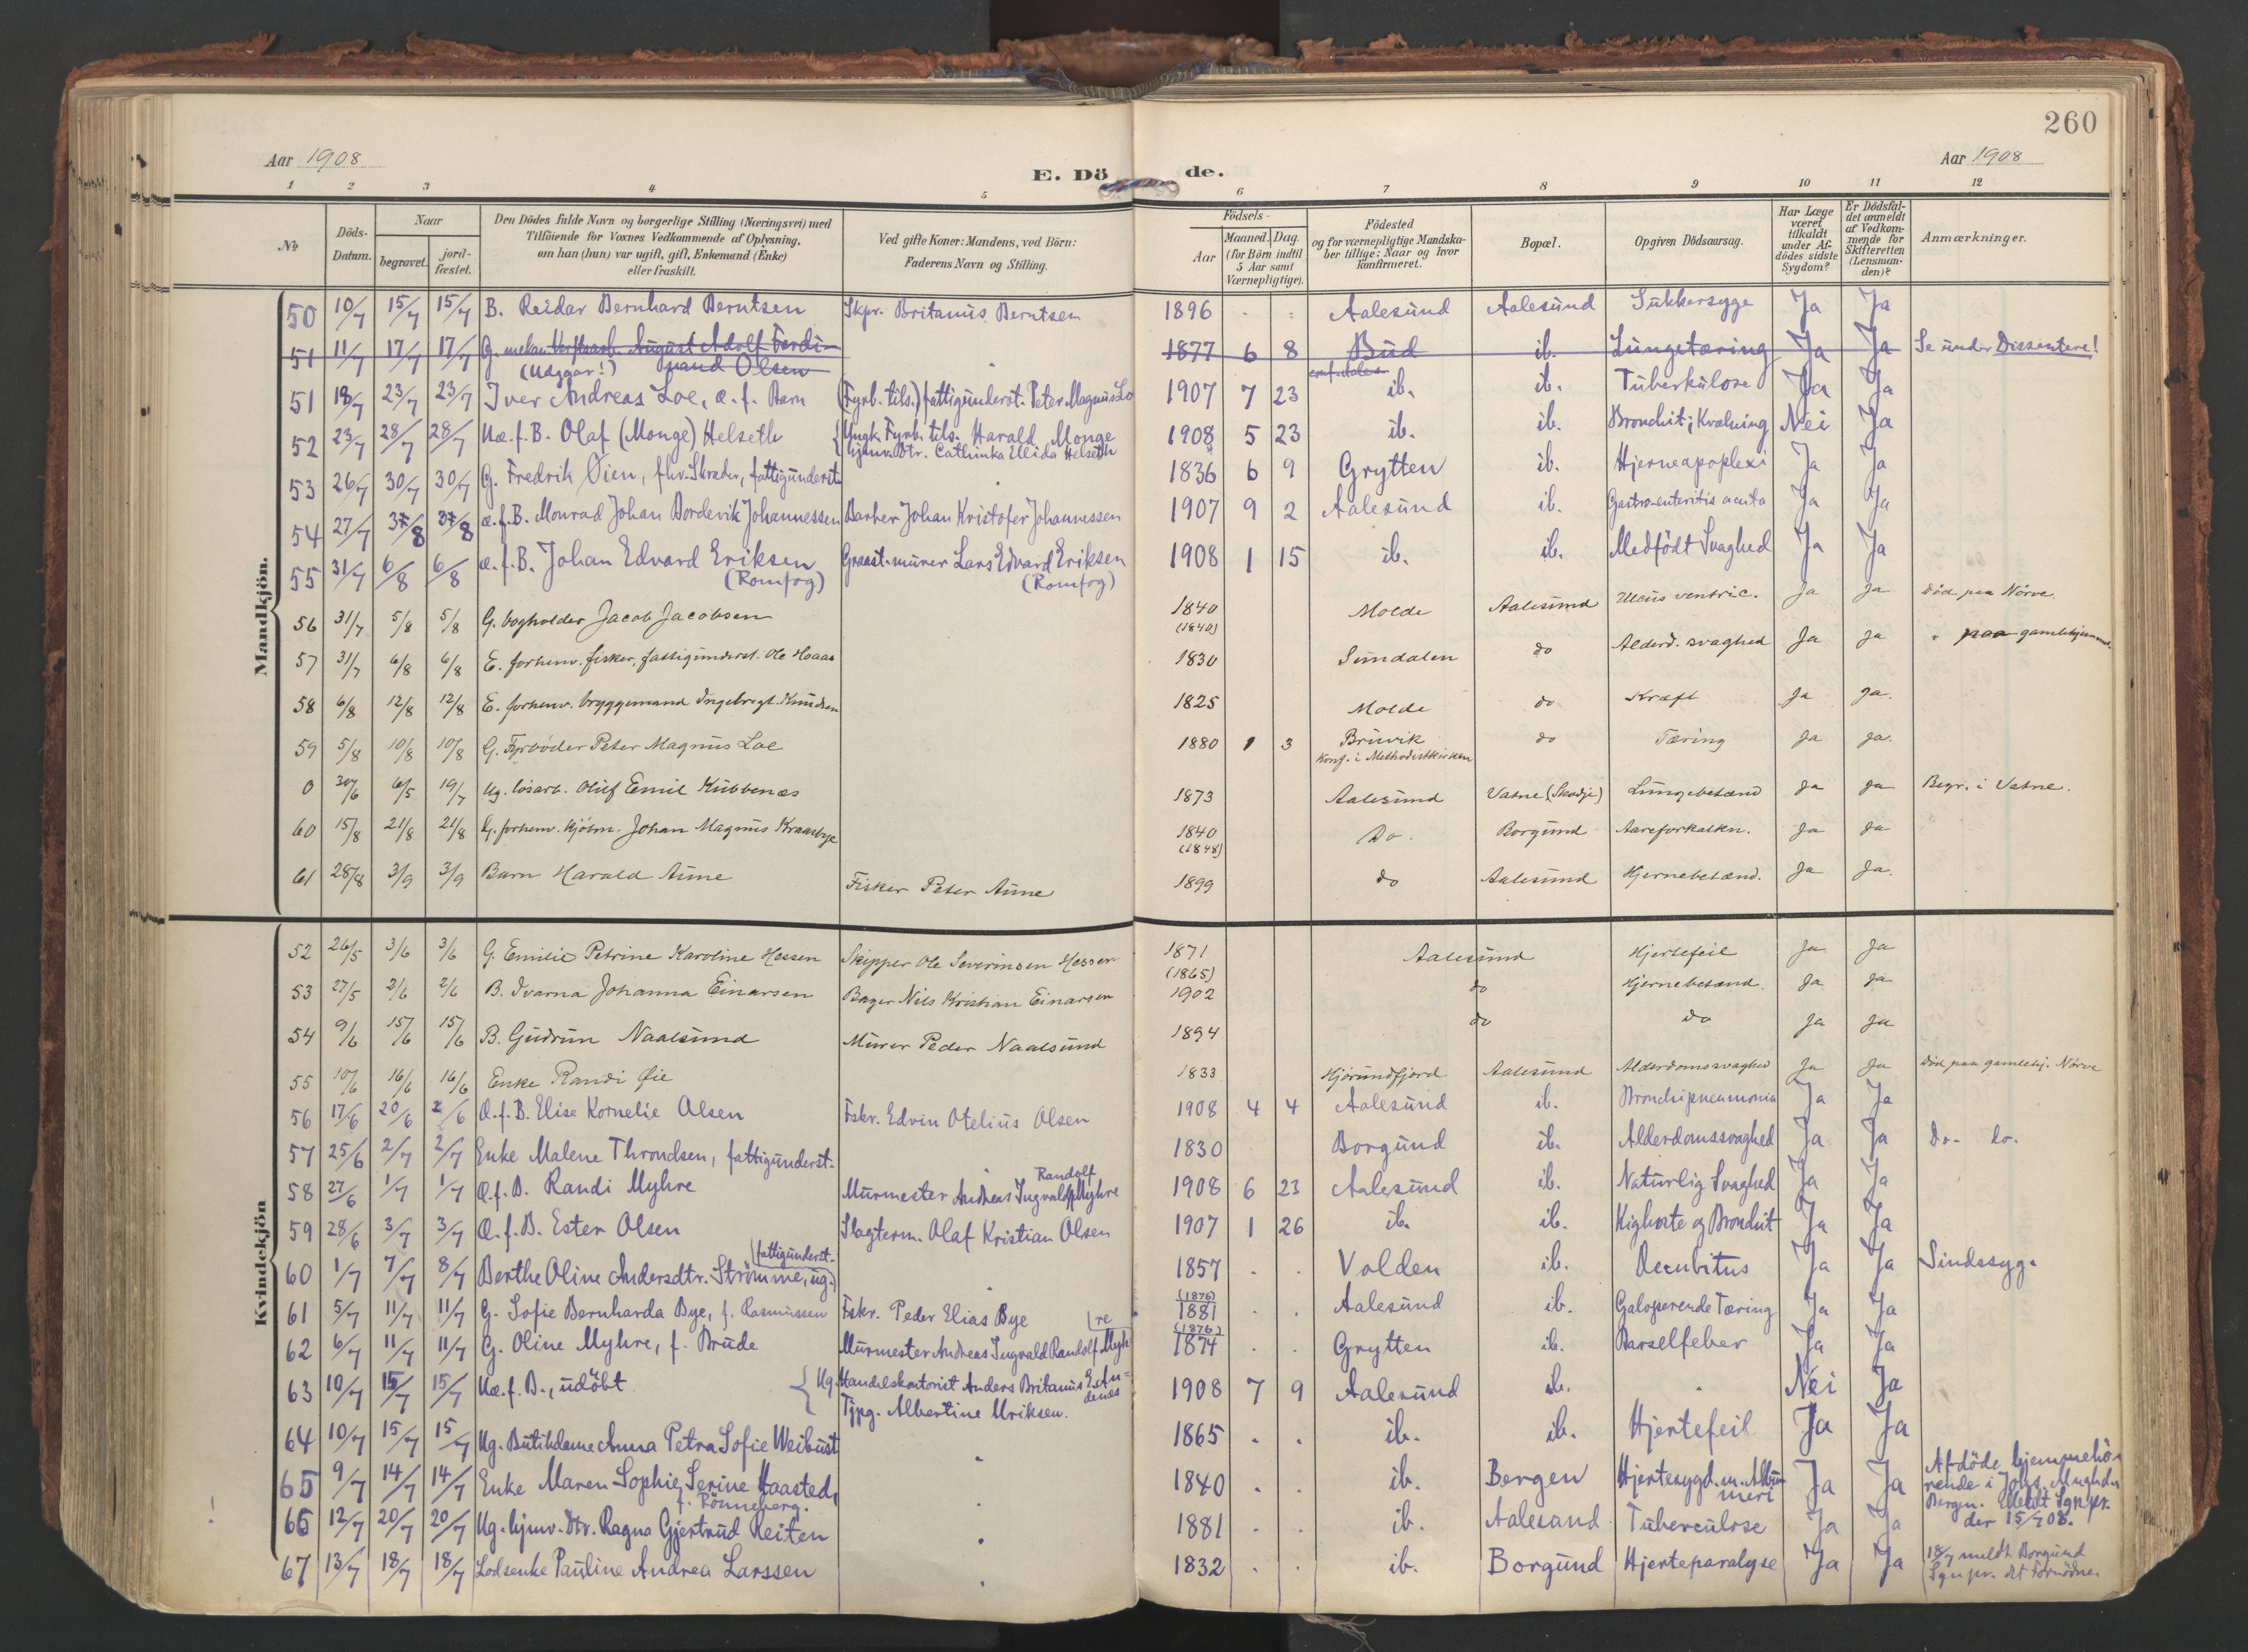 260
Aar 1908
E. Dö
de.
Aar 1908
1 2 3 4 5 6 7 8 9 10 11 12
№
Döds-Datum.
Naar
begravet.
jord-fæstet.
Den Dödes fulde Navn og borgerlige Stilling (Næringsvei) med
Tilföiende for Voxnes Vedkommende af Oplysning,
om han (hun) var ugift, gift, Enkemand (Enke)
eller fraskilt.
Ved gifte Koner: Mandens, ved Börn:
Faderens Navn og Stilling.
Födsels-
Aar
Maaned. Dag.
(for Börn indtil
5 Aar samt
Værnepligtige).
Födested
og for værnepligtige Mandska-
ber tillige: Naar og hvor
konfirmeret.
Bopæl.
Opgiven Dödsaarsag.
Har Læge
været
tilkaldt
under Af-
dödes sidste
Sygdom?
Er Dödsfal-
det anmeldt
af Vedkom-
mende for
Skifteretten
(Lensman-
den)?
Anmærkninger.
Mandkjön.
50 10/7 15/7 15/7 B. Reidar Bernhard Berntsen Skpr. Britanius Berntsen 1896 Aalesund Aalesund Sukkersyge Ja Ja
51 11/7 17/7 17/7 G. mekan. Verkstarb. August Adolf Ferdi- 1877 6 8 Bud ib. Lungetæring Ja Ja Se under Dissentere!
(Udgaar!) nand Olsen conf. Aales.
51 18/7 23/7 23/7 Iver Andreas Loe, æ. f. Barn (Fyrb. tils.) fattigunderst. Peter Magnus Lo 1907 7 23 ib. ib. Tuberkulose Ja Ja
52 23/7 28/7 28/7 Uæ. f. B. Olaf (Monge) Helseth Ungk. Fyrb. tils. Harald Monge 1908 5 23 ib. ib. Bronchit; Kvælning Nei Ja
hjemv. Dtr. Cathinka Elida Helseth
53 26/7 30/7 30/7 G. Fredrik Øien, fhv. Skræder, fattigunderst. 1836 6 9 Grytten ib. Hjerneapoplexi Ja Ja
54 27/7 3/8 3/8 æ. f. B. Monrad Johan Bordevik Johannessen Barber Johan Kristofer Johannessen 1907 9 2 Aalesund ib. Gastro-enteritis acuta Ja Ja
55 31/7 6/8 6/8 æ. f. B. Johan Edvard Eriksen Graast. murer Lars Edvard Eriksen 1908 1 15 ib. ib. Medfödt Svaghed Ja Ja
(Romfog) (Romfog)
56 31/7 5/8 5/8 G. bogholder Jacob Jacobsen 1840 Molde Aalesund Ulcus ventric. Ja Ja Död paa Nörve.
(1840)
57 31/7 6/8 6/8 E. forhenv. fisker, fattigunderst. Ole Hoaas 1830 Sundalen do Alderd. svaghed Ja Ja " paa gamlehjemmet.
58 6/8 12/8 12/8 E. forhenv. bryggemand Ingebregt Knudsen 1825 Molde do Kræft Ja Ja.
59 5/8 10/8 10/8 G. Fyrböder Peter Magnus Loe 1880 1 3 Bruvik do Tæring Ja Ja.
Konf. i Methodistkirken
0 30/6 6/5 19/7 Ug. lösarb. Oluf Emil Kubbenæs 1873 Aalesund Vatne (Skodje) Lungebetænd Ja Ja Begr. i Vatne.
60 15/8 21/8 21/8 G. forhenv. kjöbm. Johan Magnus Kraasbye 1840 Do. Borgund Aareforkalkn. Ja Ja
(1848)
61 28/8 3/9 3/9 Barn Harald Aune Fisker Peter Aune 1899 do Aalesund Hjernebetænd. Ja Ja.
Kvindekjön
52 26/5 3/6 3/6 G. Emilie Petrine Karoline Hessen Skipper Ole Severinsen Hessen 1871 Aalesund Hjertefeil Ja Ja
(1865)
53 27/5 2/6 2/6 B. Ivarna Johanna Einarsen Bager Nils Kristian Einarsen 1902 do Hjernebetænd. Ja Ja
54 9/6 15/6 15/6 B. Gudrun Naalsund Murer Peder Naalsund 1894 do do Ja Ja
55 10/6 16/6 16/6 Enke Randi Øie 1833 Hjörundfjord Aalesund Alderdomssvaghed Ja Ja Död paa gamlehj. Nörve
56 17/6 20/6 2/6 Æ. f. B. Elise Kornelie Olsen Fskr. Edvin Otelius Olsen 1908 4 4 Aalesund ib. Bronchipneumonia Ja Ja
57 25/6 2/7 2/7 Enke Malene Throndsen, fattigunderst. 1830 Borgund ib. Alderdomssvaghed Ja Ja Do. do.
58 27/6 1/7 1/7 Æ. f. B. Randi Myhre Murmester Andreas Ingvald Randolf Myhre 1908 6 23 Aalesund ib. Naturlig Svaghed Ja Ja
59 28/6 3/7 3/7 Æ. f. B. Ester Olsen Slagterm. Olaf Kristian Olsen 1907 1 26 ib. ib. Kighoste og Bronchit Ja Ja
60 1/7 7/7 8/7 Berthe Oline Andersdtr. Strömme, ug. fattigunderst. 1857 Volden ib. Decubitus Ja Ja Sindssyg.
61 5/7 11/7 11/7 G. Sofie Bernharda Bye, f. Rasmussen Fskr. Peder Elias Bye (1876) 1881 Aalesund ib. Galoperende Tæring Ja Ja
62 6/7 11/7 11/7 G. Oline Myhre, f. Brude Murmester Andreas Ingvald Randolf Myhre (1876) 1874 Grytten ib. Barselfeber Ja Ja
63 10/7 15/7 15/7 Uæ. f. B., udöbt Ug. Handelskontorist Anders Britanius E. An-denæs 1908 7 9 Aalesund ib. Nei Ja
Tjpg. Albertine Ulriksen.
64 10/7 15/7 15/7 Ug. Butikdame Anna Petra Sofie Weibust 1865 ib. ib. Hjertefeil Ja Ja
65 9/7 14/7 14/7 Enke Maren Sophie Serine Haasted, 1840 ib. Bergen Hjertesygd. m. Albu-meri Ja Ja Afdöde hjemmehö-
f. Rönneberg. rende i Johs. Mnghd.
Bergen. Sgnpr.
der 15/7 08.
! 66 12/7 20/7 20/7 Ug. hjmv. Dtr. Ragna Gjertrud Reiten 1881 ib. Aalesund Tuberculose Ja Ja
67 13/7 18/7 18/7 Lodsenke Pauline Andrea Larssen 1832 ib. Borgund Hjerteparalyse Ja Ja 18/7 meldt Borgund
Sgnpr. det Fornödne.